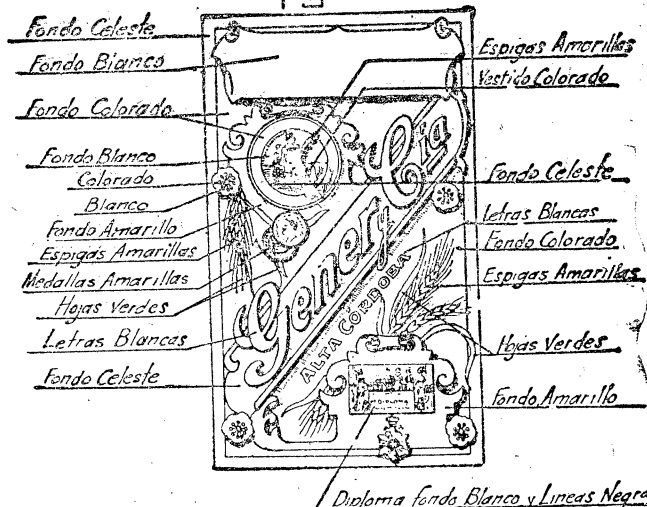 Fondo Celeste
Fondo Blanco
Fondo Colorado
Fondo Blanco
Colorado
Blanco
Fondo Amarillo
Espigas Amarillas
Medallas Amarillas
Hojas Verdes
Letras Blancas
Fondo Celeste
Gener y Cia
ALTA CORDOBA
Espigas Amarillas
Vestido Colorado
Fondo Celeste
Letras Blancas
Fondo Colorado
Espigas Amarillas
Hojas Verdes
Fondo Amarillo
Diploma fondo Blanco y Lineas Negra